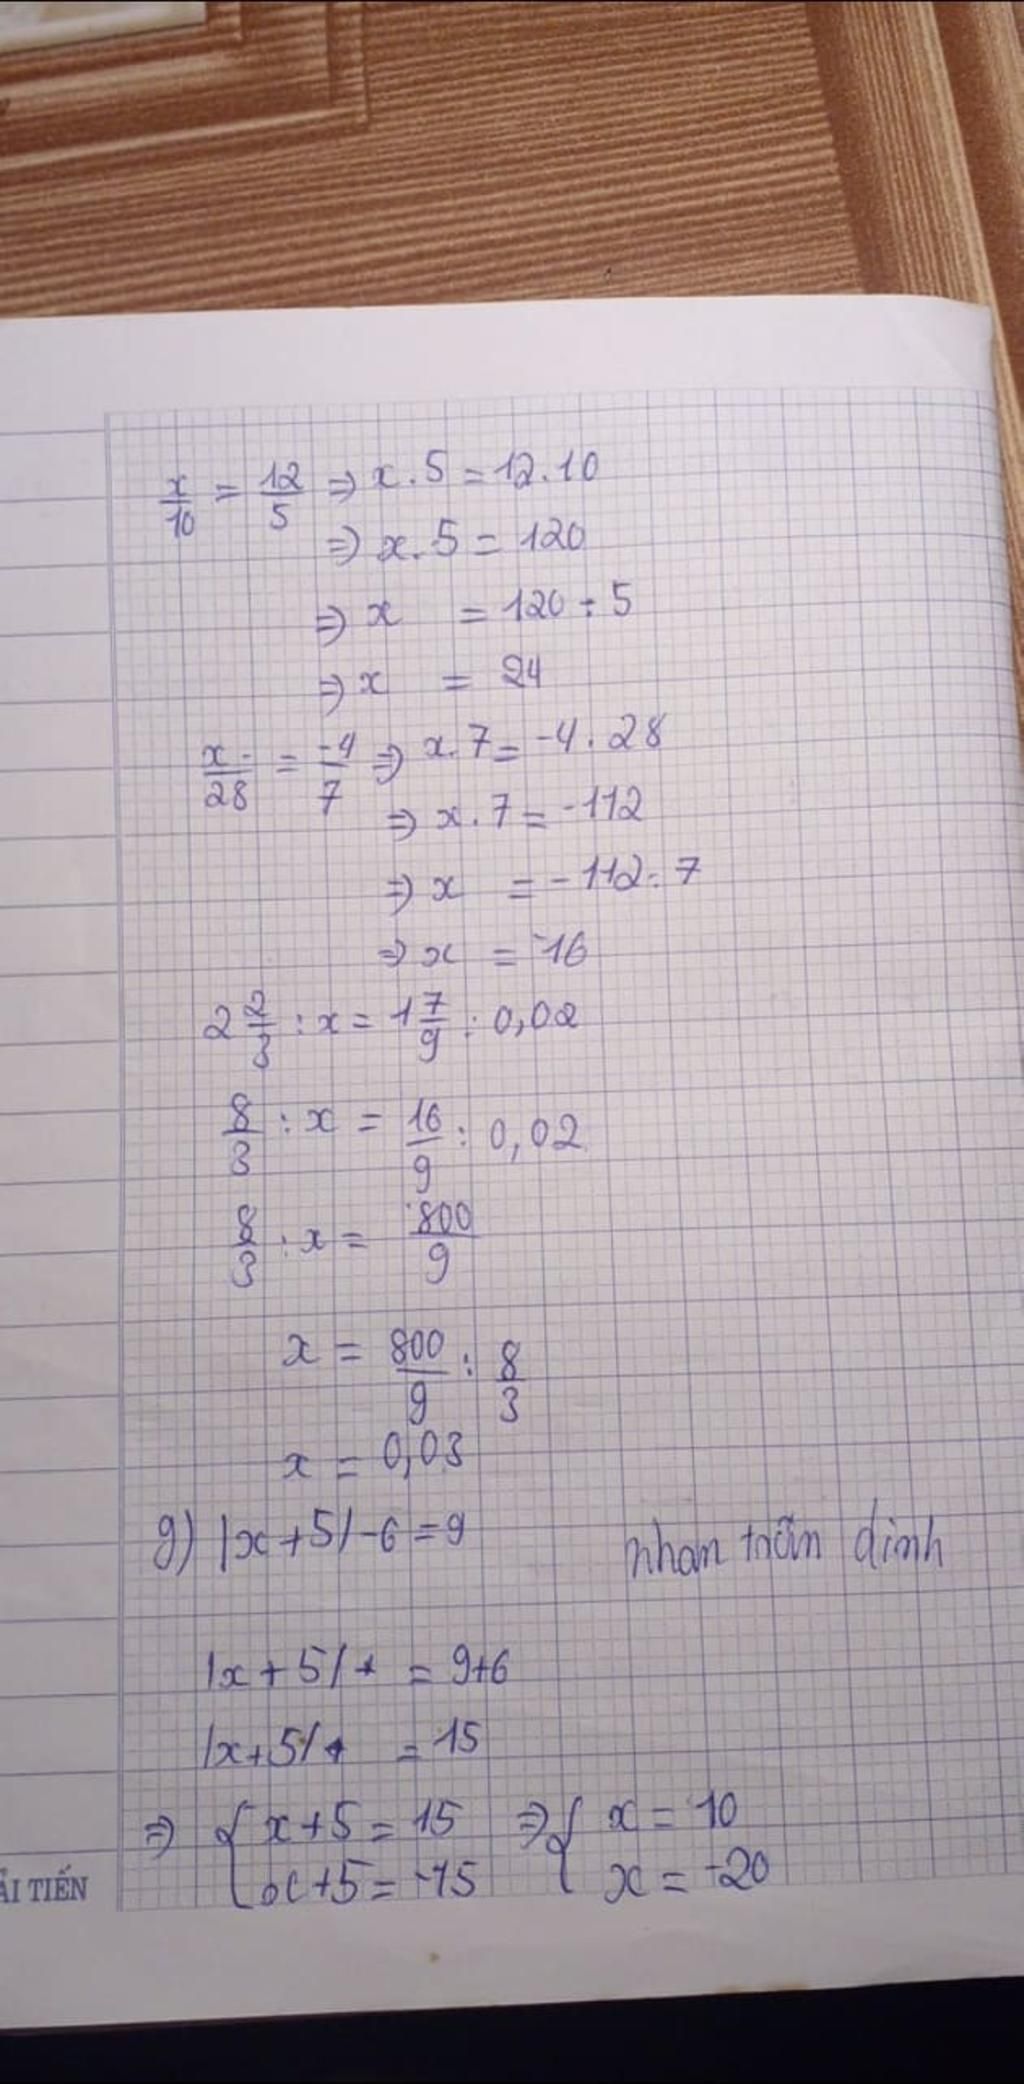 x/10 = 12/5 ⇒ x.5 = 12.10
⇒ x.5 = 120
⇒ x = 120 : 5
⇒ x = 24
x/28 = -4/7 ⇒ x.7 = -4.28
⇒ x.7 = -112
⇒ x = -112:7
⇒ x = -16
2 2/3 : x = 1 7/9 : 0,02
8/3 : x = 16/9 : 0,02
8/3 : x = 800/9
x = 800/9 : 8/3
x = 0,03
g) |x+5|-6 = 9
|x+5| = 9+6
|x+5| = 15
⇒ { x+5 = 15 ⇒ { x = 10
x+5 = -15 x = -20
ẢI TIẾN